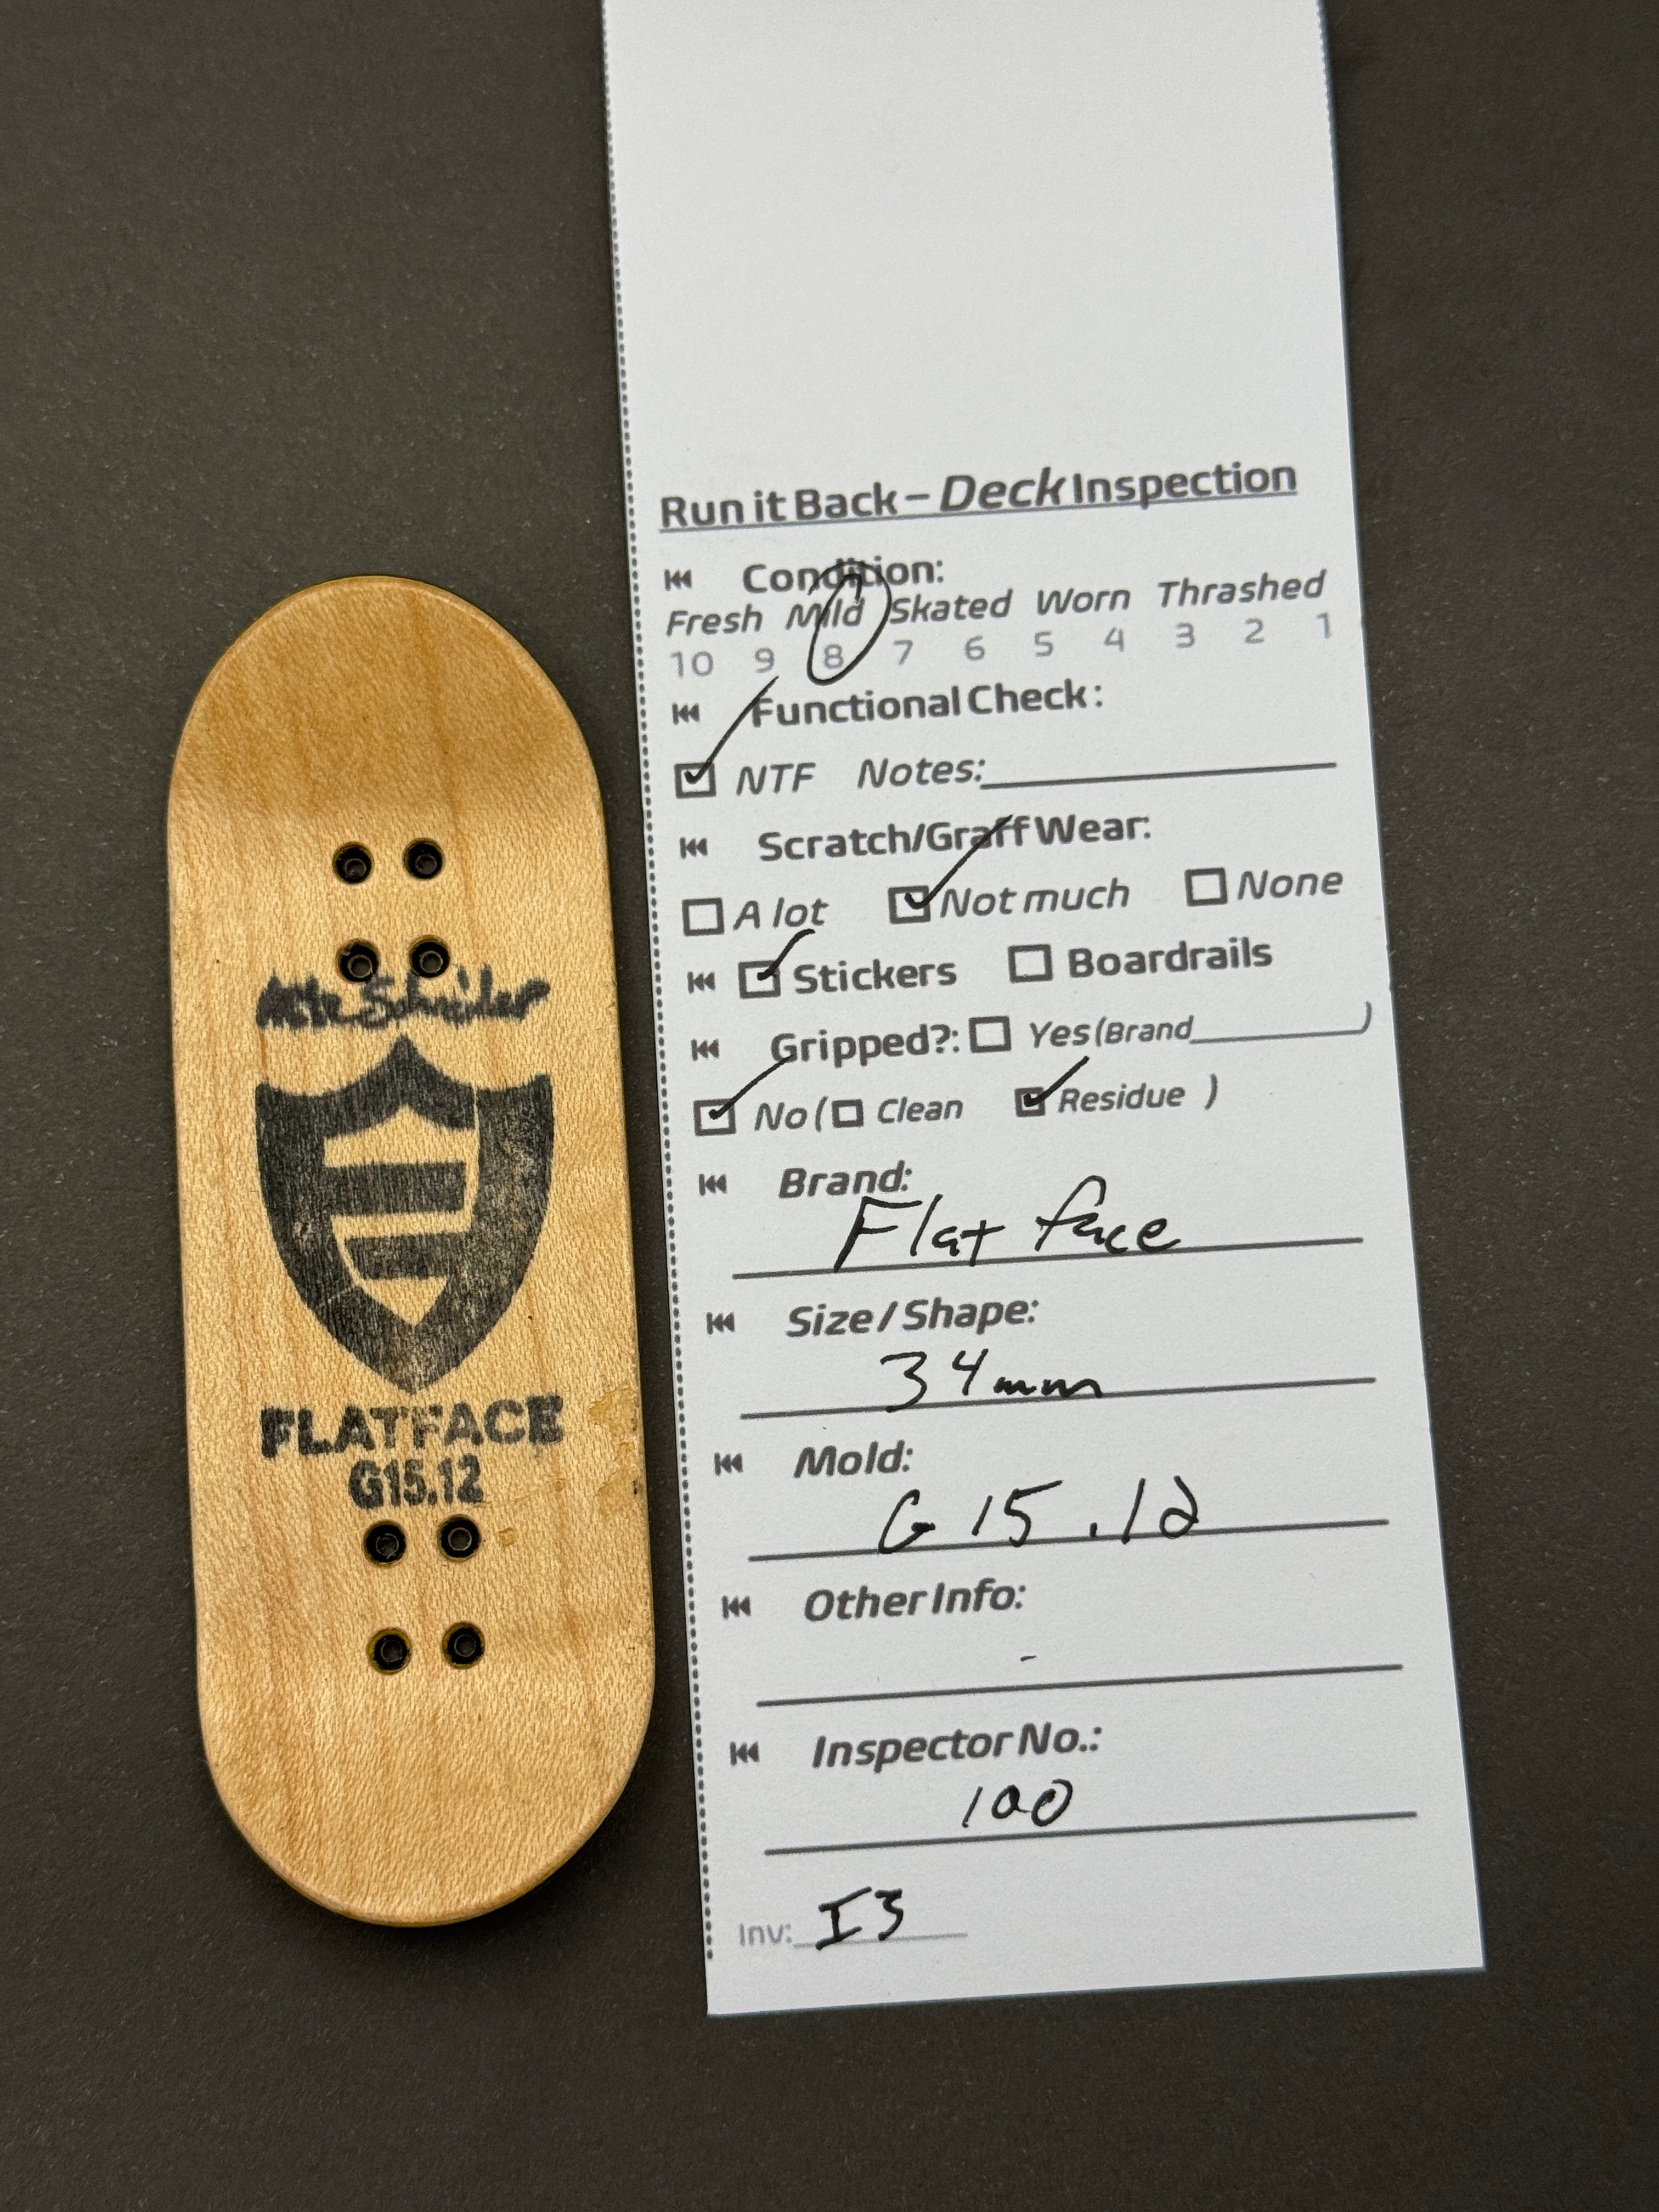 Schneider
FLATFACE
G15.12
Run it Back – Deck Inspection
Condition:
Fresh Mild Skated Worn Thrashed
10 9 8 7 6 5 4 3 2 1
Functional Check:
NTF Notes:
Scratch/Graff Wear:
A lot Not much None
Stickers Boardrails
Gripped?: Yes (Brand )
No ( Clean Residue )
Brand:
Flat face
Size / Shape:
34mm
Mold:
G 15.12
Other Info:
-
Inspector No.:
100
Inv: I3